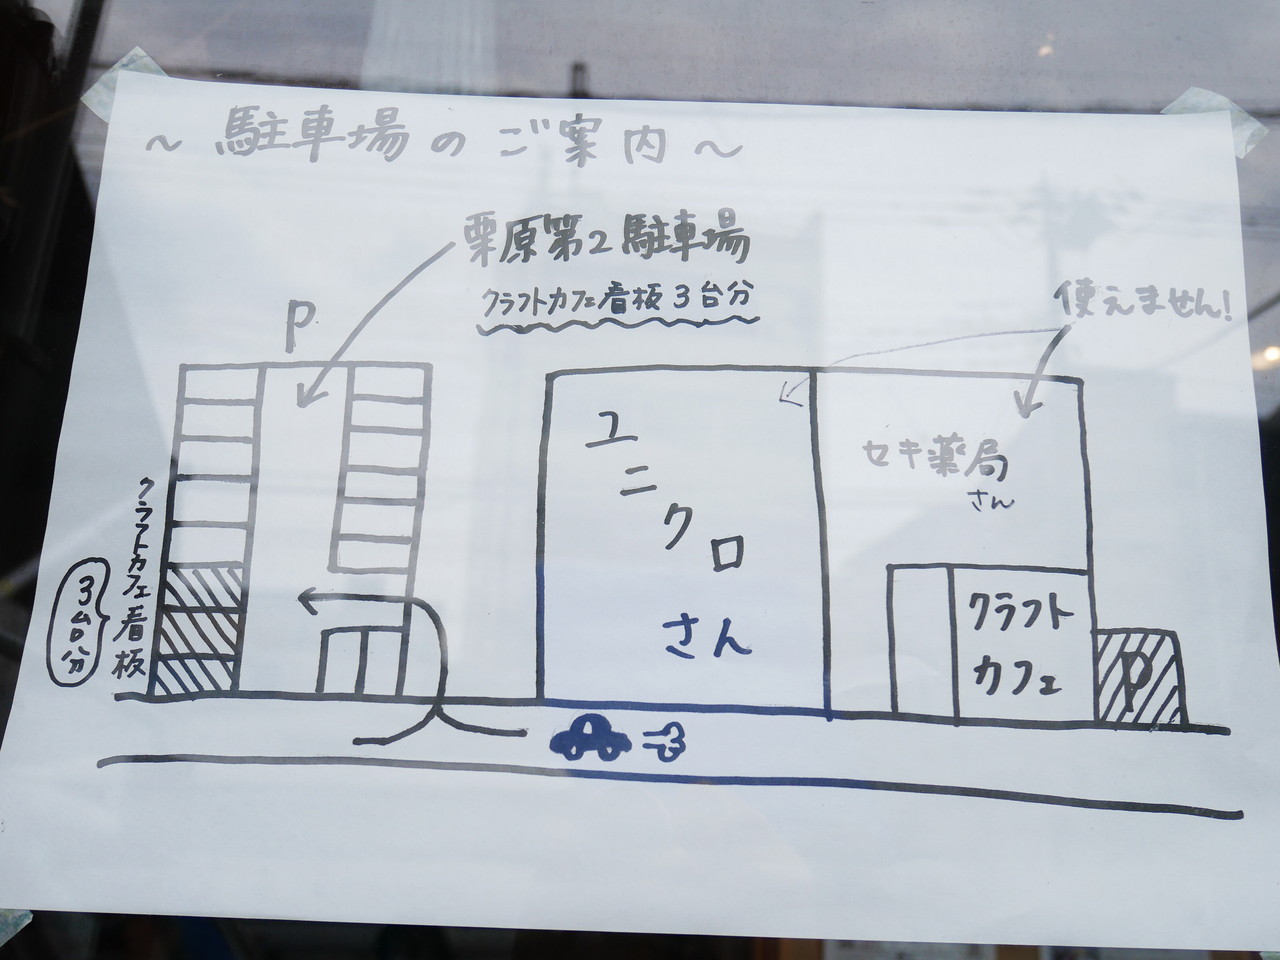 ～駐車場のご案内～
栗原第2駐車場
クラフトカフェ看板3台分
P
使えません!
ユニクロ
さん
セキ薬局
さん
クラフトカフェ看板
3台分
クラフト
カフェ
P